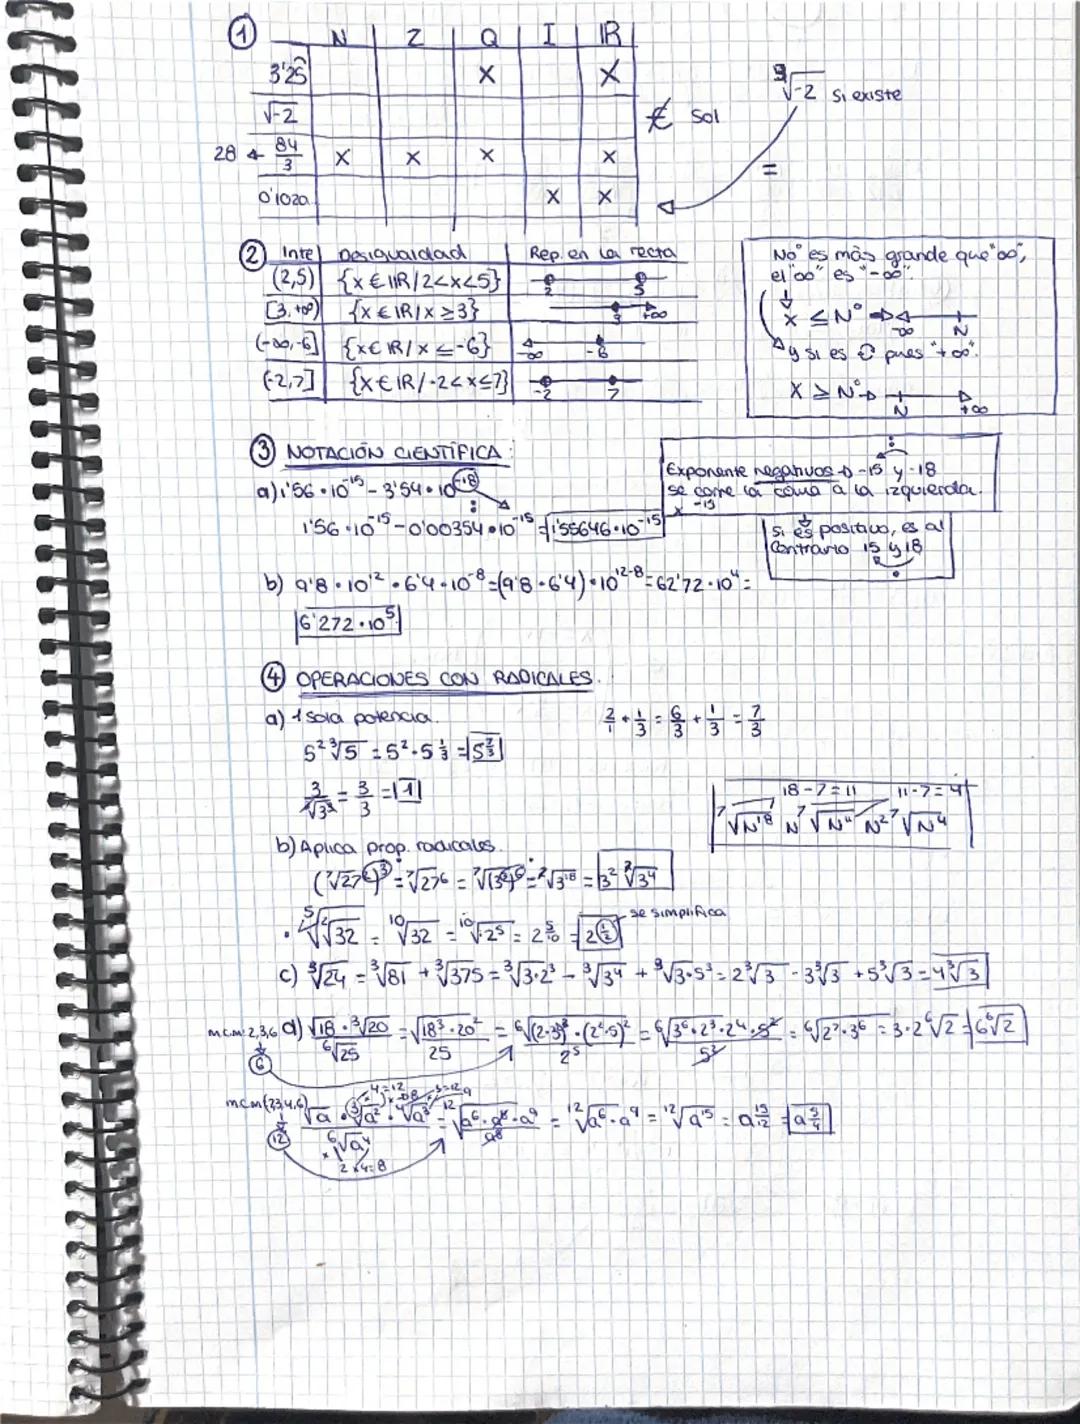 ① N Z Q I IR
3'25 X X
√-2 ∄ Sol
28 ← 84/3 X X X X
0'1020 X X
³√-2 Si existe
=
② Inte Desigualdad Rep. en la recta
(2,5) {x ∈ IR/2<x<5} 2 5
[3,+∞) {x ∈ IR/x ≥ 3} 3 +∞
(-∞,-6] {x ∈ IR/x ≤ -6} -∞ -6
(-2,7] {x ∈ IR/-2<x≤7} -2 7
Nº es más grande que "∞",
el "∞" es "-∞".
x ≤ Nº → -∞ N
y si es pues "+∞".
X ≥ Nº → N +∞
③ NOTACIÓN CIENTÍFICA:
a) 1'56 · 10⁻¹⁵ - 3'54 · 10⁻¹⁸
1'56 · 10⁻¹⁵ - 0'00354 · 10⁻¹⁵ = 1'55646 · 10⁻¹⁵
Exponente negativos → -15 y -18
se corre la coma a la izquierda.
x -15
si es positivo, es al
contrario 15 y 18
b) 9'8 · 10¹² · 6'4 · 10⁻⁸ = (9'8 · 6'4) · 10¹²⁻⁸ = 62'72 · 10⁴ =
6'272 · 10⁵
④ OPERACIONES CON RADICALES.
a) 1 sola potencia.
2/1 + 1/3 = 6/3 + 1/3 = 7/3
5² ³√5 = 5² · 5 1/3 = 5 7/3
3/√3² = 3/3 = 1
18-7=11 11-7=4
⁷√N¹⁸ N ⁷√N¹¹ N² ⁷√N⁴
b) Aplica prop. radicales.
(⁷√27²)³ = ⁷√27⁶ = ⁷√(3³)⁶ = ⁷√3¹⁸ = 3² ⁷√3⁴
· ⁵√²√32 = ¹⁰√32 = ¹⁰√2⁵ = 2 5/10 = 2 1/2 se simplifica
c) ³√24 = ³√81 + ³√375 = ³√3·2³ - ³√3⁴ + ³√3·5³ = 2³√3 - 3³√3 + 5³√3 = 4³√3
m.c.m: 2,3,6 d) √18 · ³√20 / ⁶√25 = √18³·20² / 25 = ⁶√(2·3²)³·(2²·5)² / 2⁵ = ⁶√3⁶·2³·2⁴·5² / 5² = ⁶√2⁷·3⁶ = 3·2 ⁶√2 = 6⁶√2
6
4=12 3=12
mcm(2,3,4,6) √a · ³√a² · ⁴√a³ / ⁶√a⁴ = ¹²√a⁶·a⁸·a⁹ / a⁸ = ¹²√a⁶·a⁹ = ¹²√a¹⁵ = a 15/12 = a 5/4
12
2 x4=8